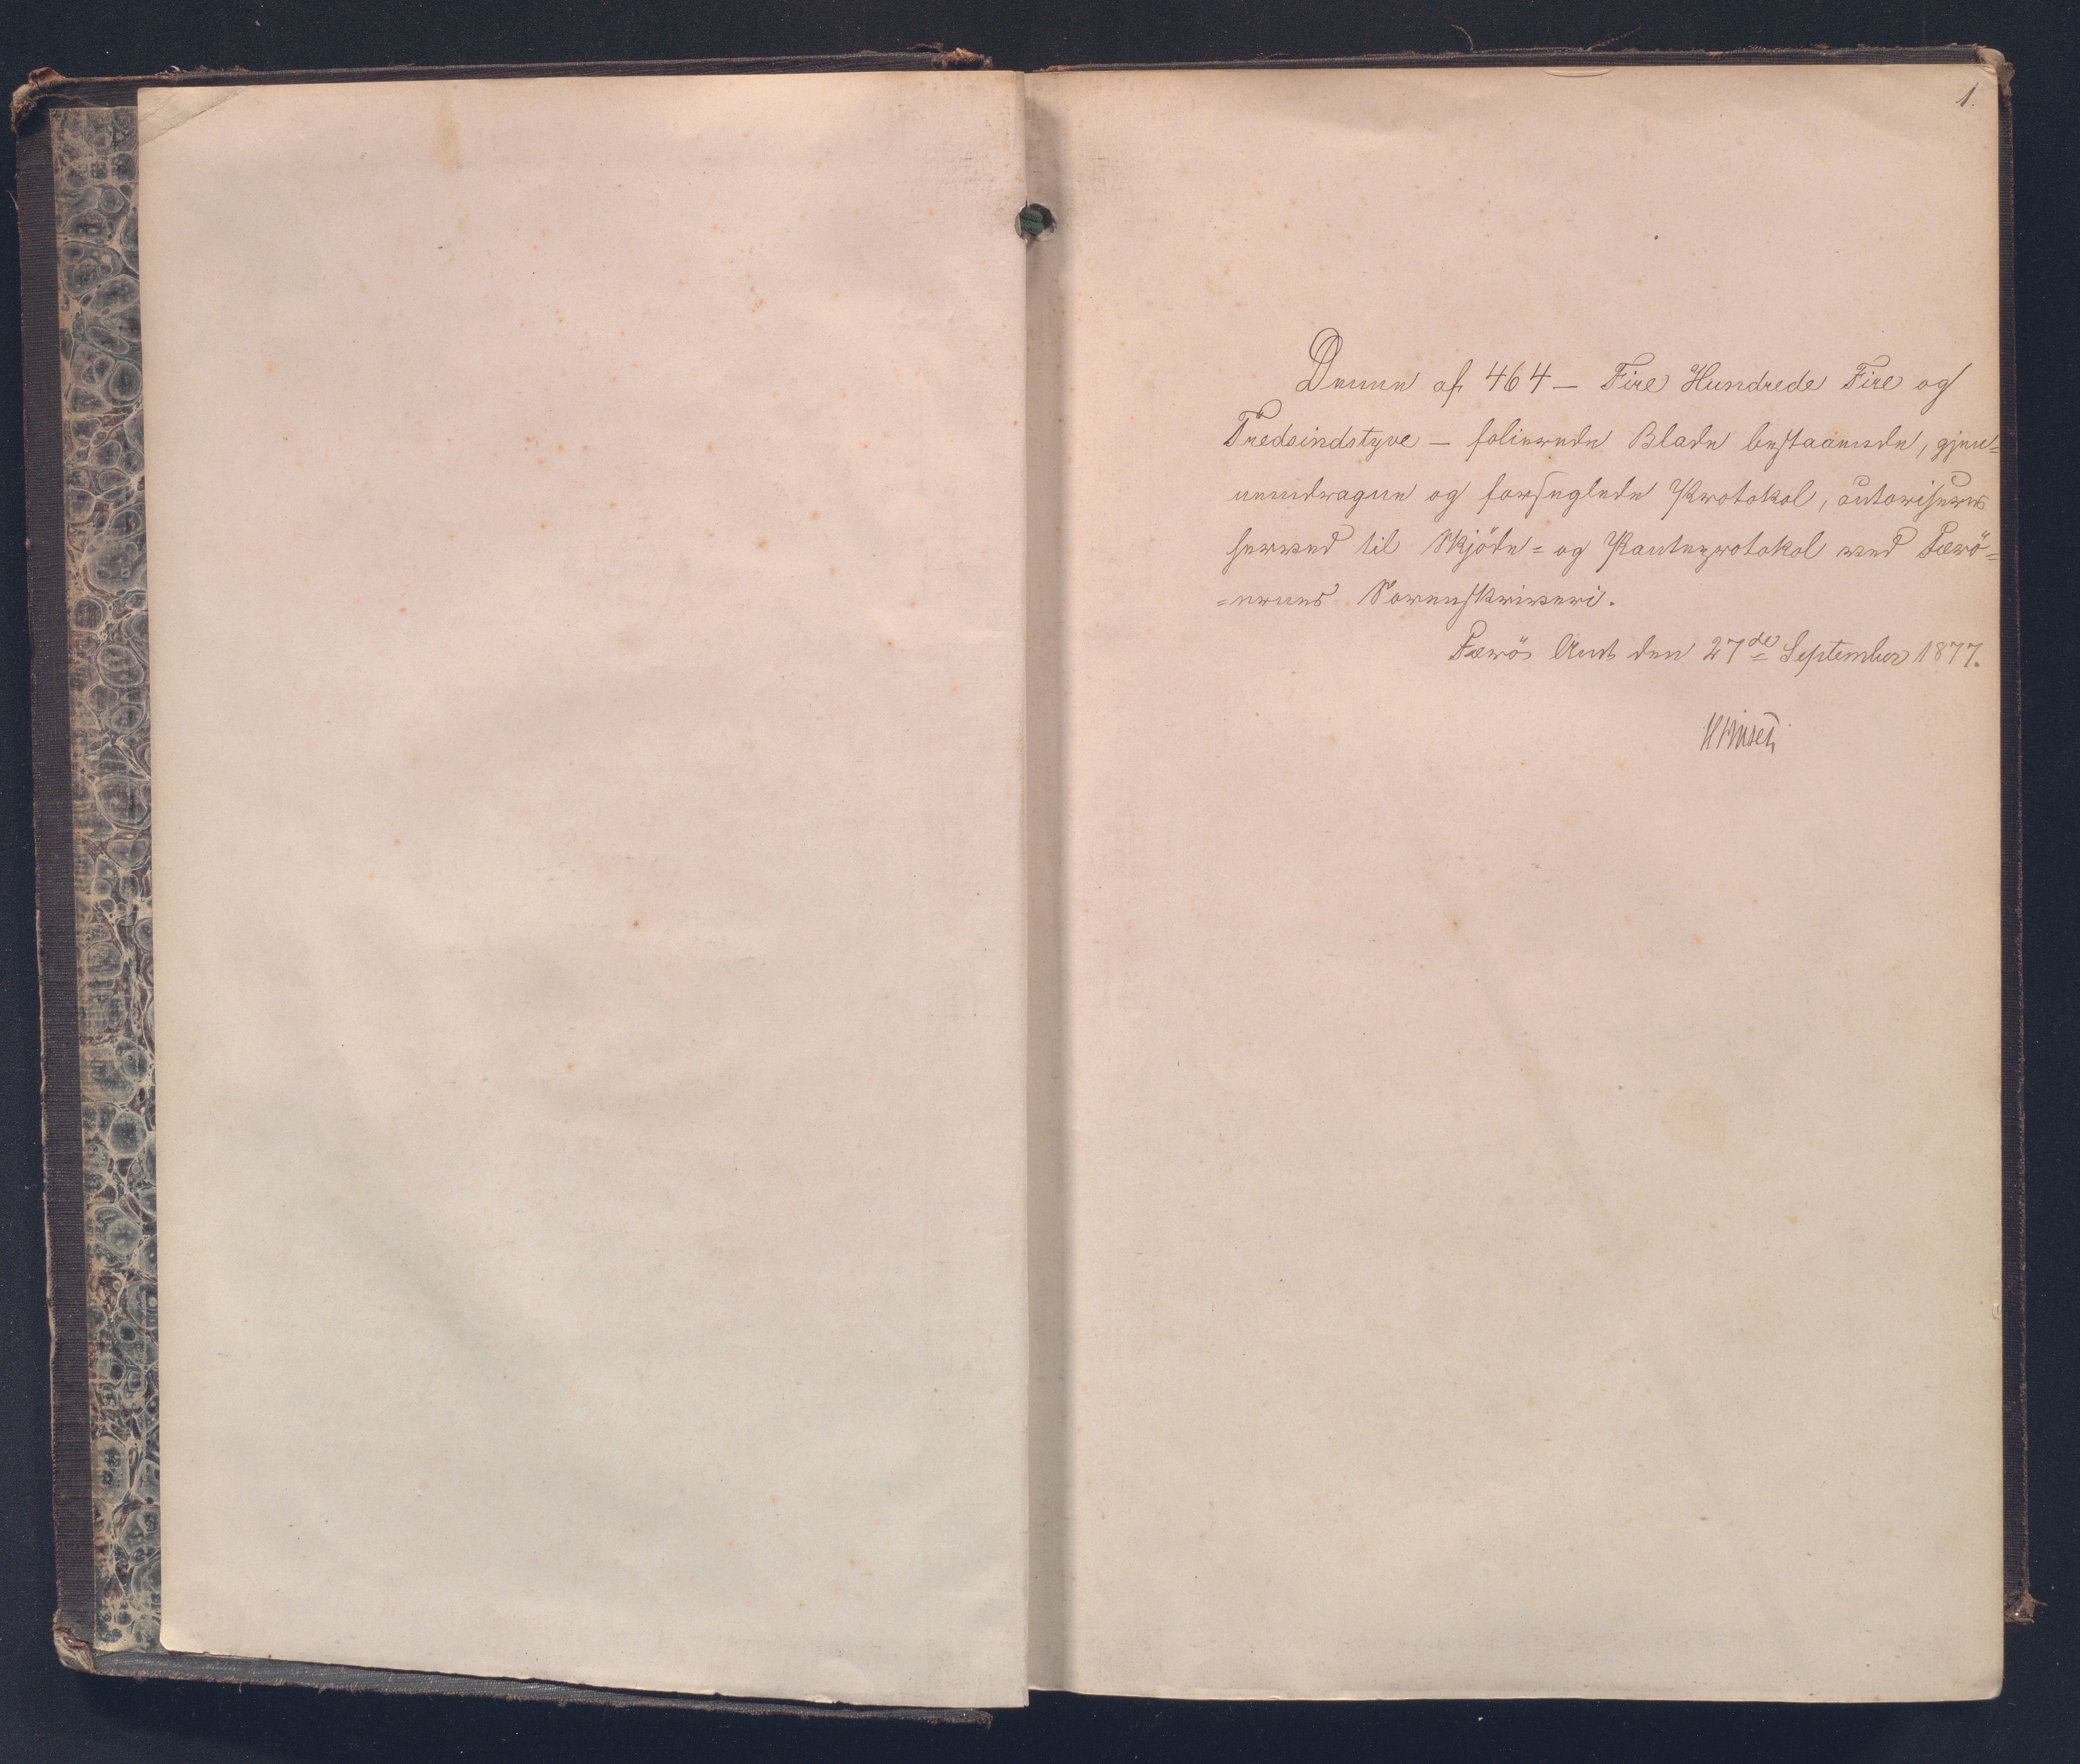 1.
Denne af 464 — Fire Hundrede Fire og
Tredsindstyve — folierede Blade bestaaende, gjen=
nemdragne og forseglede Protokol, autoriseres
herved til Skjöde= og Panteprotokol ved Færö=
=ernes Sorenskriveri.
Færös Amt den 27de September 1877.